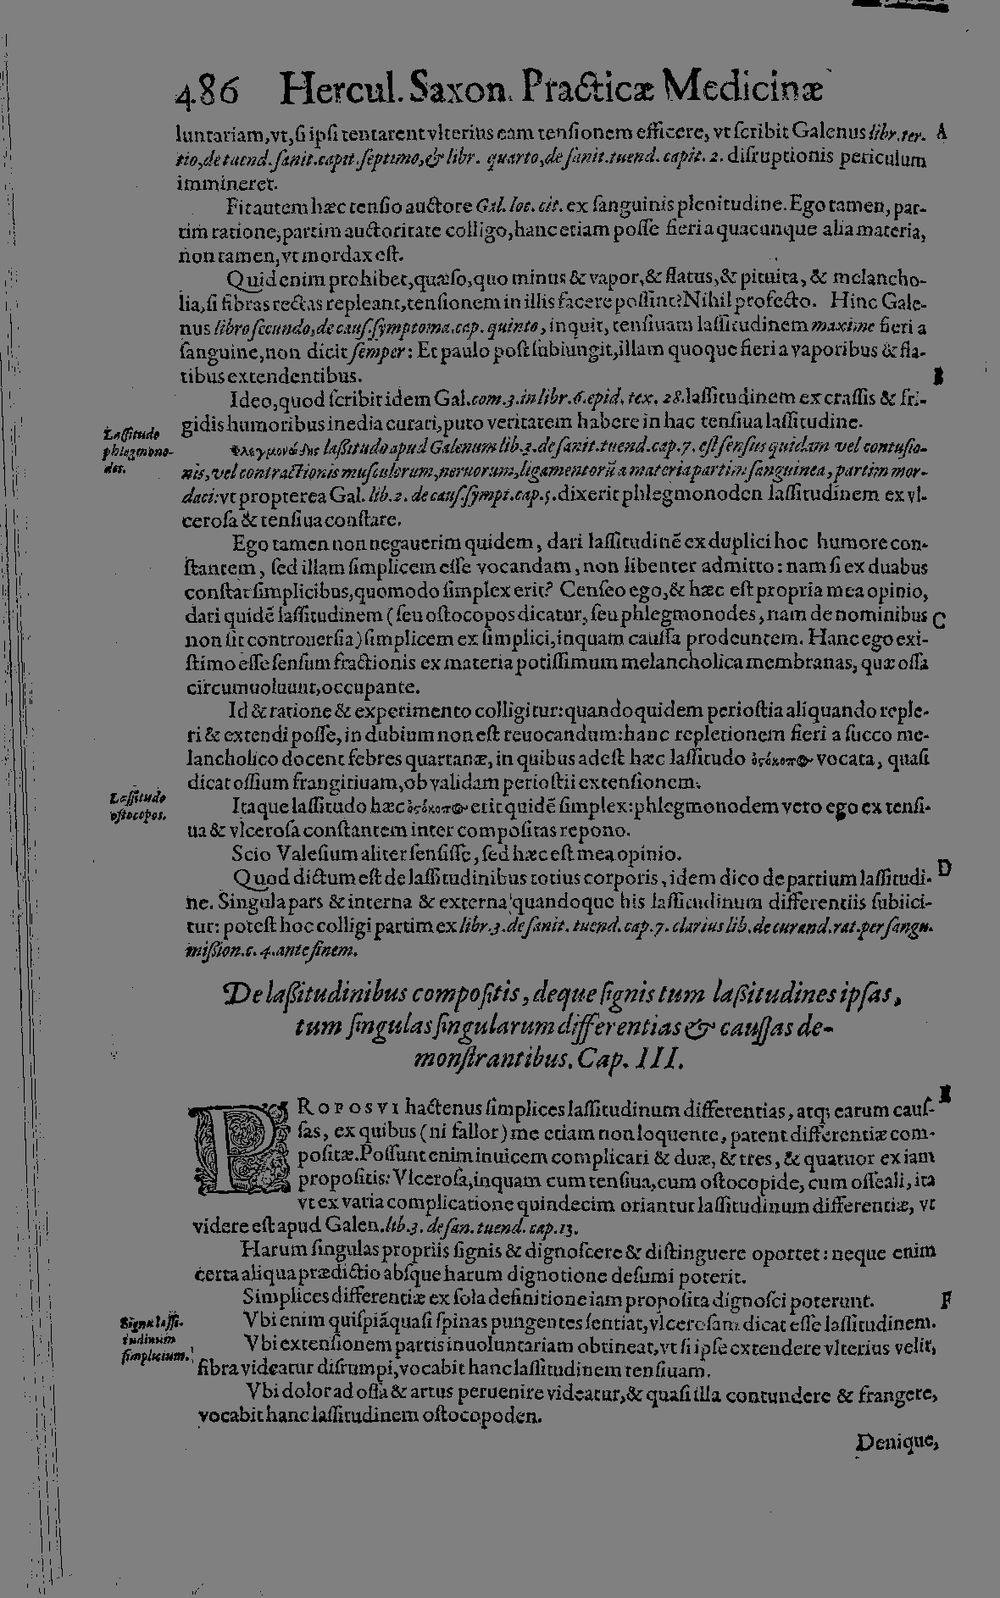 486 Hercul. Saxon. Practicæ Medicinæ
luntariam, vt, si ipsi tentarent vlterius eam tensionem efficere, vt scribit Galenus libr. ter- A
tio, de tuend. sanit. capit. septimo, & libr. quarto, de sanit. tuend. capit. 2. disruptionis periculum
immineret.
Fit autem hæc tensio auctore Gal. loc. cit. ex sanguinis plenitudine. Ego tamen, par-
tim ratione, partim auctoritate colligo, hanc etiam posse fieri a quacunque alia materia,
non tamen, vt mordax est.
Quid enim prohibet, quæso, quo minus & vapor, & flatus, & pituita, & melancho-
lia, si fibras rectas repleant, tensionem in illis facere possint? Nihil profecto. Hinc Gale-
nus libro secundo, de caus. symptoma. cap. quinto, inquit, tensiuam lassitudinem maxime fieri a
sanguine, non dicit semper: Et paulo post subiungit, illam quoque fieri a vaporibus & fla-
tibus extendentibus. B
Ideo, quod scribit idem Gal. com. 3. in libr. 6. epid. tex. 28. lassitudinem ex crassis & fri-
gidis humoribus inedia curari, puto veritatem habere in hac tensiua lassitudine.
Lassitudo
phlegmono-
des.
φλεγμονώδης lassitudo apud Galenum lib. 3. de sanit. tuend. cap. 7. est sensus quidam vel contusio-
nis, vel contractionis musculorum, neruorum, ligamentorū a materia partim sanguinea, partim mor-
daci: vt propterea Gal. lib. 2. de caus. sympt. cap. 5. dixerit phlegmonoden lassitudinem ex vl-
cerosa & tensiua constare.
Ego tamen non negauerim quidem, dari lassitudinē ex duplici hoc humore con-
stantem, sed illam simplicem esse vocandam, non libenter admitto: nam si ex duabus
constat simplicibus, quomodo simplex erit? Censeo ego, & hæc est propria mea opinio,
dari quidē lassitudinem (seu ostocopos dicatur, seu phlegmonodes, nam de nominibus C
non sit controuersia) simplicem ex simplici, inquam caussa prodeuntem. Hanc ego exi-
stimo esse sensum fractionis ex materia potissimum melancholica membranas, quæ ossa
circumuoluunt, occupante.
Id & ratione & experimento colligitur: quandoquidem periostia aliquando reple-
ri & extendi posse, in dubium non est reuocandum: hanc repletionem fieri a succo me-
lancholico docent febres quartanæ, in quibus adest hæc lassitudo ὀστόκοπος vocata, quasi
dicat ossium frangitiuam, ob validam periostii extensionem.
Lassitudo
ostocopos.
Itaque lassitudo hæc ὀστόκοπος erit quidē simplex: phlegmonodem vero ego ex tensi-
ua & vlcerosa constantem inter compositas repono.
Scio Valesium aliter sensisse, sed hæc est mea opinio.
Quod dictum est de lassitudinibus totius corporis, idem dico de partium lassitudi- D
ne. Singula pars & interna & externa quandoque his lassitudinum differentiis subiici-
tur: potest hoc colligi partim ex libr. 3. de sanit. tuend. cap. 7. clarius lib. de curand. rat. per sangu.
mission. c. 4. ante finem.
De lassitudinibus compositis, deque signis tum lassitudines ipsas,
tum singulas singularum differentias & caussas de-
monstrantibus. Cap. III.
PROPOSVI hactenus simplices lassitudinum differentias, atq; earum caus- E
sas, ex quibus (ni fallor) me etiam non loquente, patent differentiæ com-
positæ. Possunt enim inuicem complicari & duæ, & tres, & quatuor ex iam
propositis: Vlcerosa, inquam cum tensiua, cum ostocopide, cum osseali, ita
vt ex varia complicatione quindecim oriantur lassitudinum differentiæ, vt
videre est apud Galen. lib. 3. de san. tuend. cap. 13.
Harum singulas propriis signis & dignoscere & distinguere oportet: neque enim
certa aliqua prædictio absque harum dignotione desumi poterit.
Simplices differentiæ ex sola definitione iam proposita dignosci poterunt. F
Signa lassi-
tudinum
simplicium.
Vbi enim quispiā quasi spinas pungentes sentiat, vlcerosam dicat esse lassitudinem.
Vbi extensionem partis inuoluntariam obtineat, vt si ipse extendere vlterius velit,
fibra videatur disrumpi, vocabit hanc lassitudinem tensiuam.
Vbi dolor ad ossa & artus peruenire videatur, & quasi illa contundere & frangere,
vocabit hanc lassitudinem ostocopoden.
Denique,